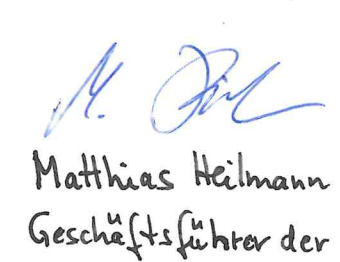 Matthias Heilmann
Geschäftsführer der